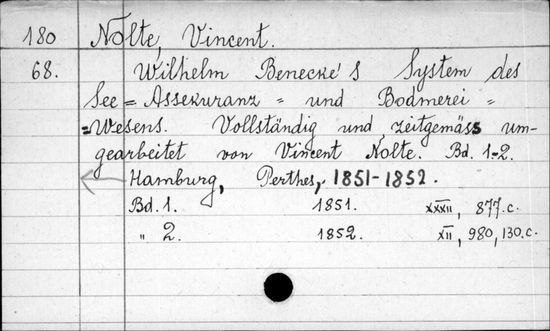 180 Nolte, Vincent.
68. Wilhelm Benecke's System des
See=Assekuranz= und Bodmerei=
=Wesens. Vollständig und zeitgemäss um-
gearbeitet von Vincent Nolte. Bd. 1-2.
Hamburg, Perthes, 1851-1852.
Bd. 1. 1851. XXXII, 877.c.
" 2. 1852. XII, 980, 130.c.